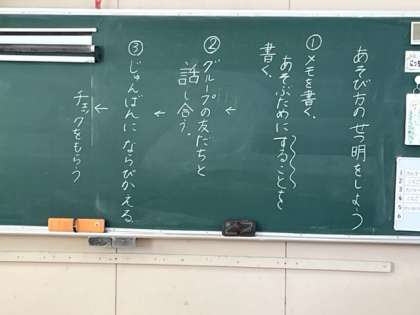 あそび方のせつ明をしよう
①メモを書く.
あそぶためにすることを
書く.
↓
②グループの友だちと
話し合う.
↓
③じゅんばんにならびかえる.
↓
チェックをもらう